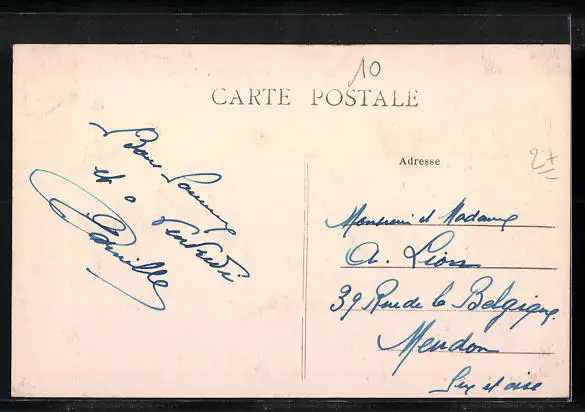 10
CARTE POSTALE
Adresse
Bons
et a Vendredi
Camille
Monsieur et Madame
A. Lion
39 Rue de la Belgique
Meudon
Sne et oise